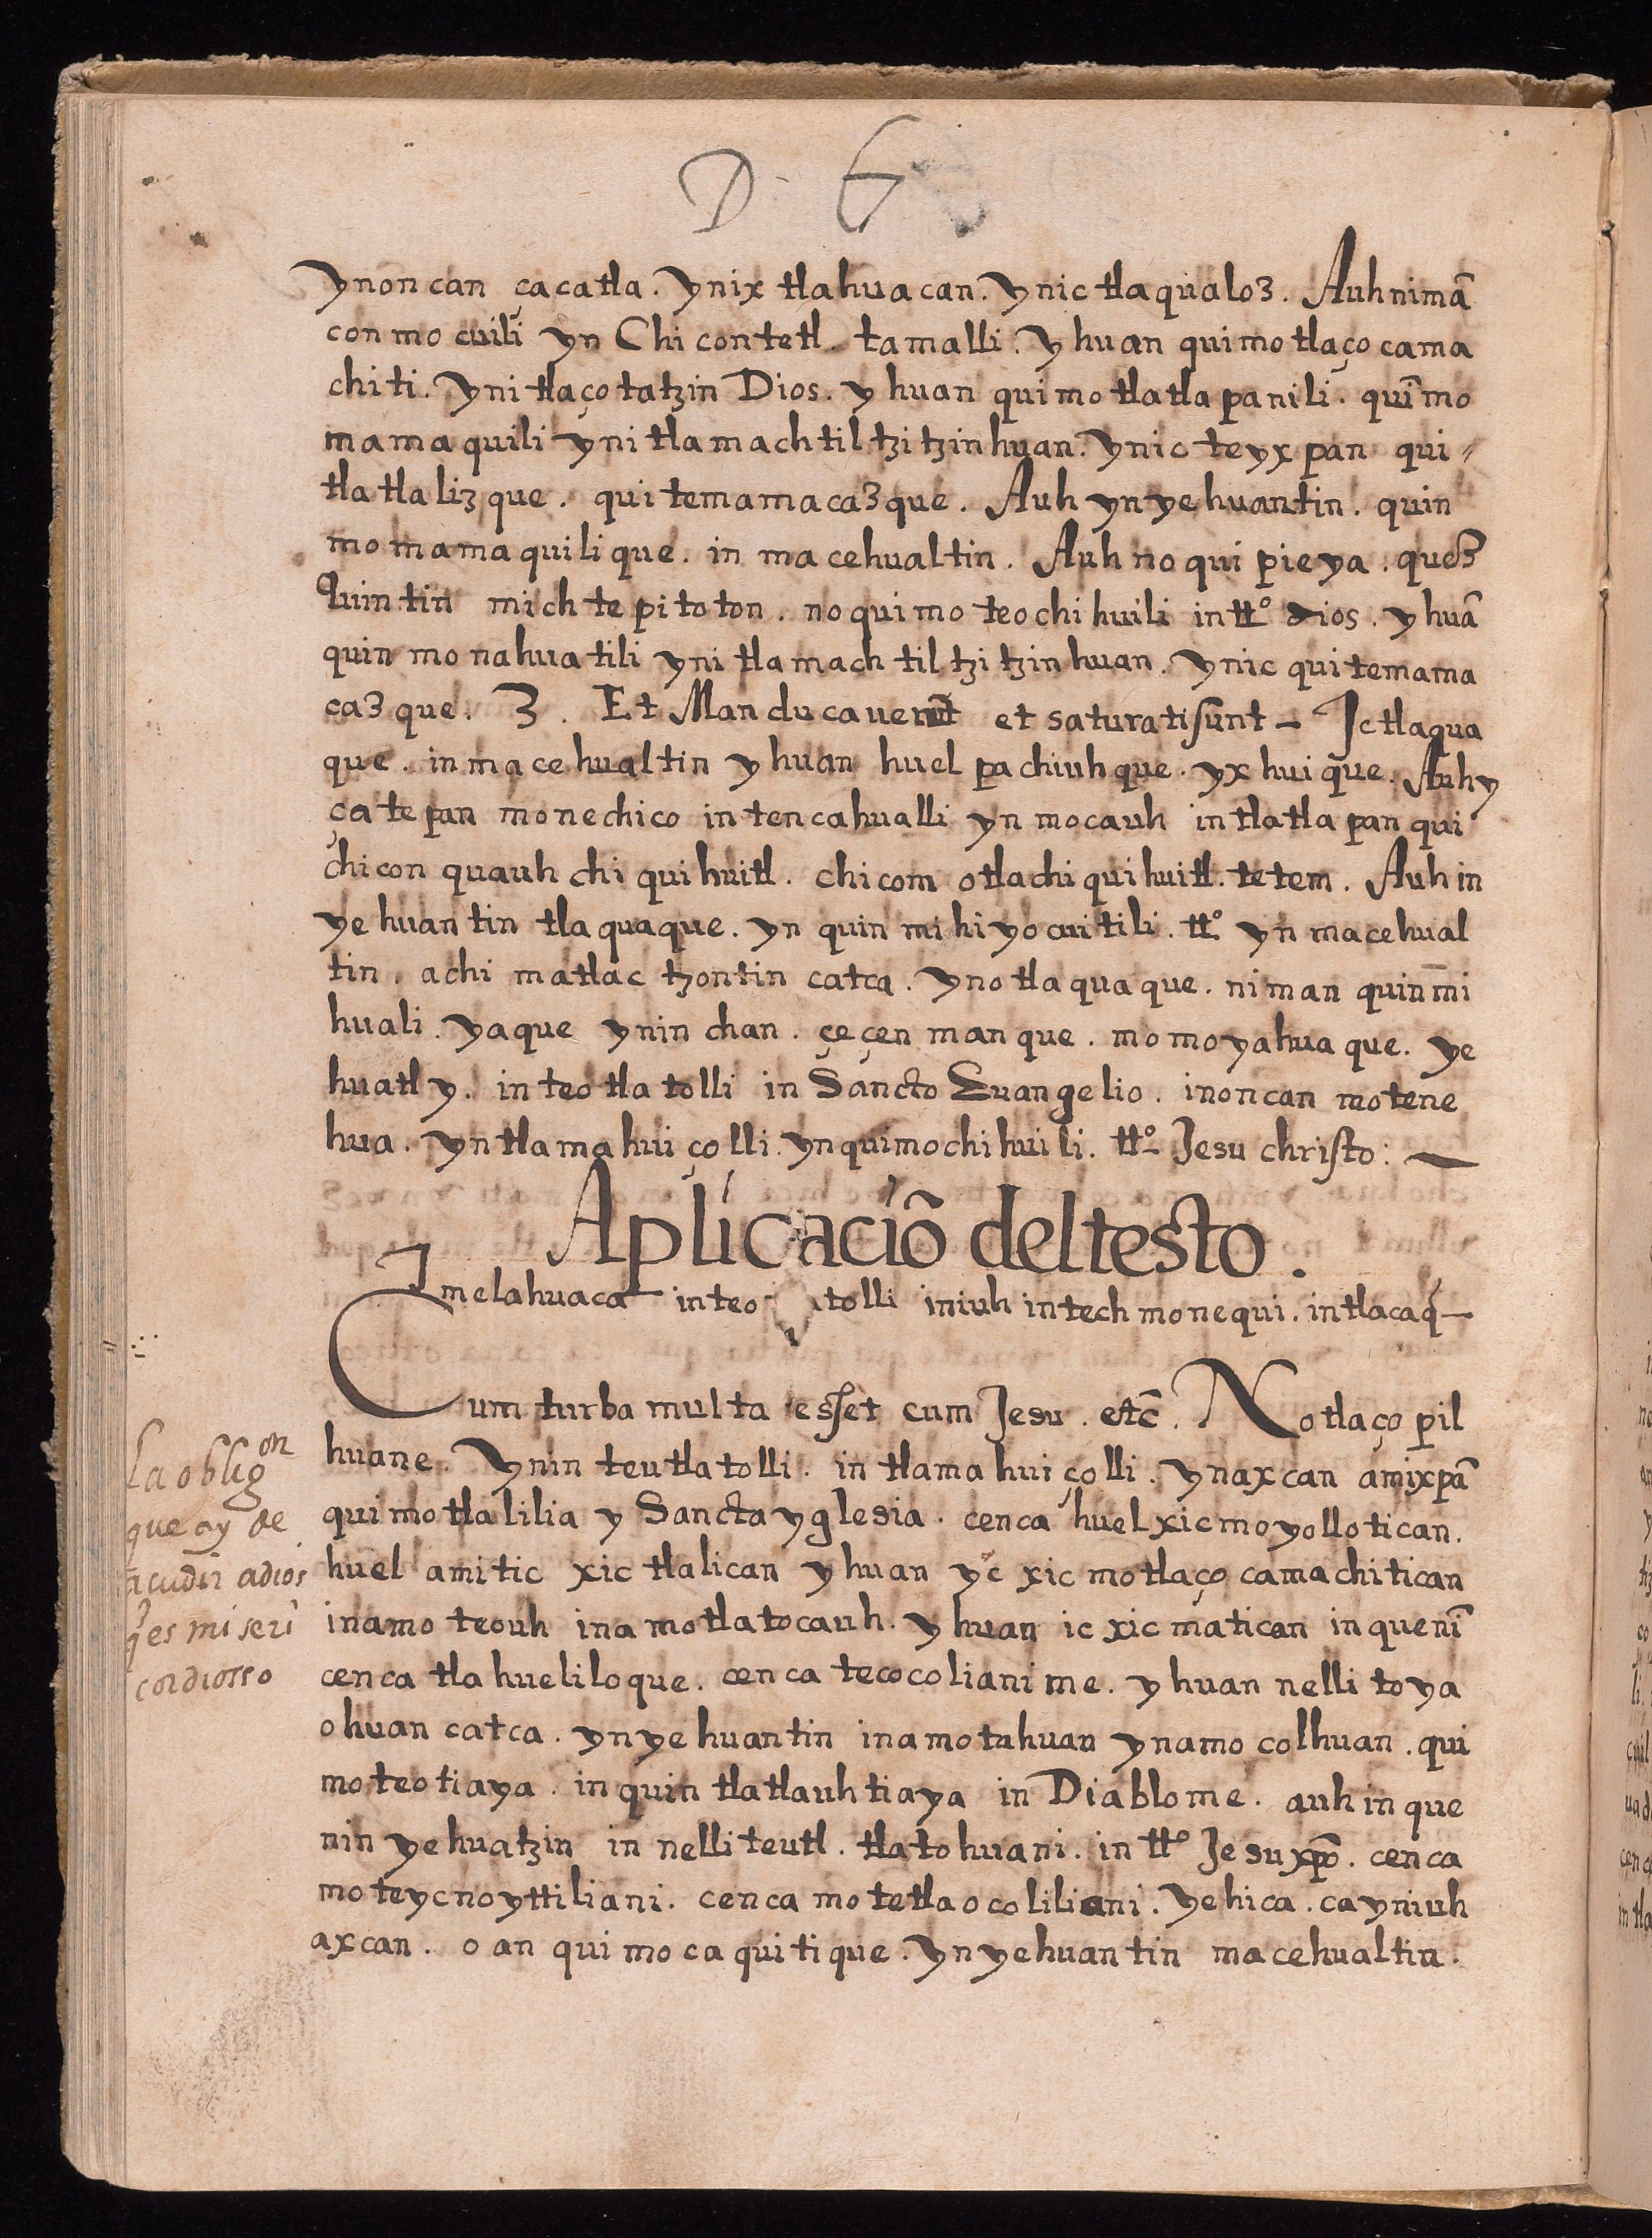 D. 6
ynon can çacatla. ynix tlahuacan. ynic tlaqualoz. Auh nimā
con mo cuili yn Chicontetl. tamalli. yhuan quimo tlaço cama
chiti. yni tlaço tatzin Dios. yhuan quimo tlatlapanili. quīmo
mamaquili yni tlamachtiltzitzinhuan. ynic teyxpan qui
tlatlalizque. quitemamacazque. Auh yn yehuantin. quin
momamaquilique. in macehualtin. Auh no quipieya. quez
quintin michtepitoton. no quimo teochihuili in tt° dios. yhuā
quin monahuatili yni tlamachtiltzitzinhuan. ynic quitemama
cazque. 3. Et Manducauerūt et saturati sunt - Ic tlaqua
que. in macehualtin yhuan huel pachiuhque. yxhuique. Auh y
çatepan monechico in tencahualli yn mocauh in tlatlapanqui
chicon quauhchiquihuitl. chicom otlachiquihuitl. tetem. Auh in
yehuantin tlaquaque. yn quinmihiyocuitili. tt° yn macehual
tin. achi matlactzontin catca. yn otlaquaque. niman quinmi
huali. yaque ynin chan. çeçenmanque. momoyahuaque. ye
huatl y. in teotlatolli in Sancto Euangelio. in oncan motene
hua. yn tlamahuiçolli. yn quimochihuili. tt° Jesu christo: -
Aplicaciō del testo.
Imelahuaca in teo tolli iniuh intech monequi. in tlacaq̄ -
Cum turba multa esset cum Jesu. etc̄. Notlaçopil
huane. ynin teutlatolli. in tlamahuiçolli. yn axcan amixpā
quimotlalilia y Sancta yglesia. cenca huel xicmoyollotican.
huel amitic xictlalican yhuan yc xicmotlaçocamachitican
in amoteouh in amotlatocauh. yhuan ic xicmatican in quenī
cenca tlahueliloque. cenca tecocolianime. yhuan nelli toya
ohuan catca. yn yehuantin in amotahuan yn amocolhuan. qui
moteotiaya. in quintlatlauhtiaya in Diablome. auh in que
nin yehuatzin in nelli teutl. tlatohuani. in tt° Jesu xp̄o. cenca
moteycnoyttiliani. cenca motetlaocoliliani. yehica. ca yniuh
axcan. oanquimocaquitique. yn yehuantin macehualtin.
la oblig^on
que ay de
acudir a dios
q̄ es miseri
cordiosso